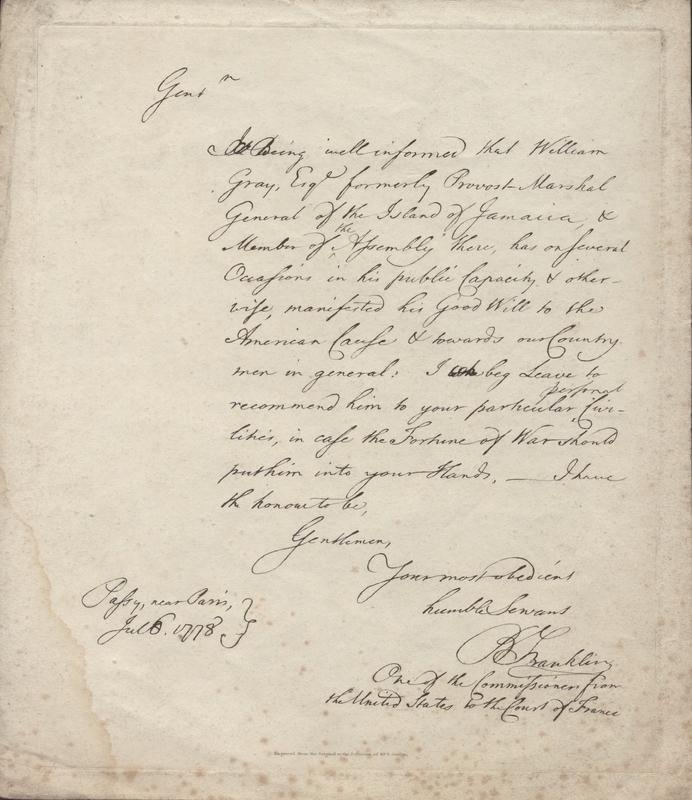 Gentn
Being well informed that William
Gray, Esqr formerly Provost-Marshal
General of the Island of Jamaica, &
Member of the Assembly there, has on several
Occasions in his public Capacity & other-
wise, manifested his Good Will to the
American Cause & towards our Country-
men in general: I beg Leave to
recommend him to your particular personal Civi-
lities, in case the Fortune of War should
put him into your Hands. — I have
the honour to be,
Gentlemen,
Your most obedient
humble Servant
B Franklin
One of the Commissioners from
the United States to the Court of France
Passy, near Paris,
Jul 6. 1778
Engraved from the Original in the Possession of